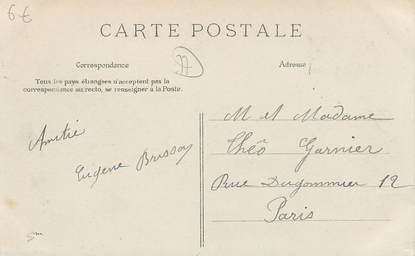 6€
CARTE POSTALE
Correspondance
77
Adresse
Tous les pays étrangers n'acceptent pas la
correspondance au recto, se renseigner à la Poste.
Amitié
Eugène Brissoy
M et Madame
Théo Garnier
Rue Dugommier 12
Paris